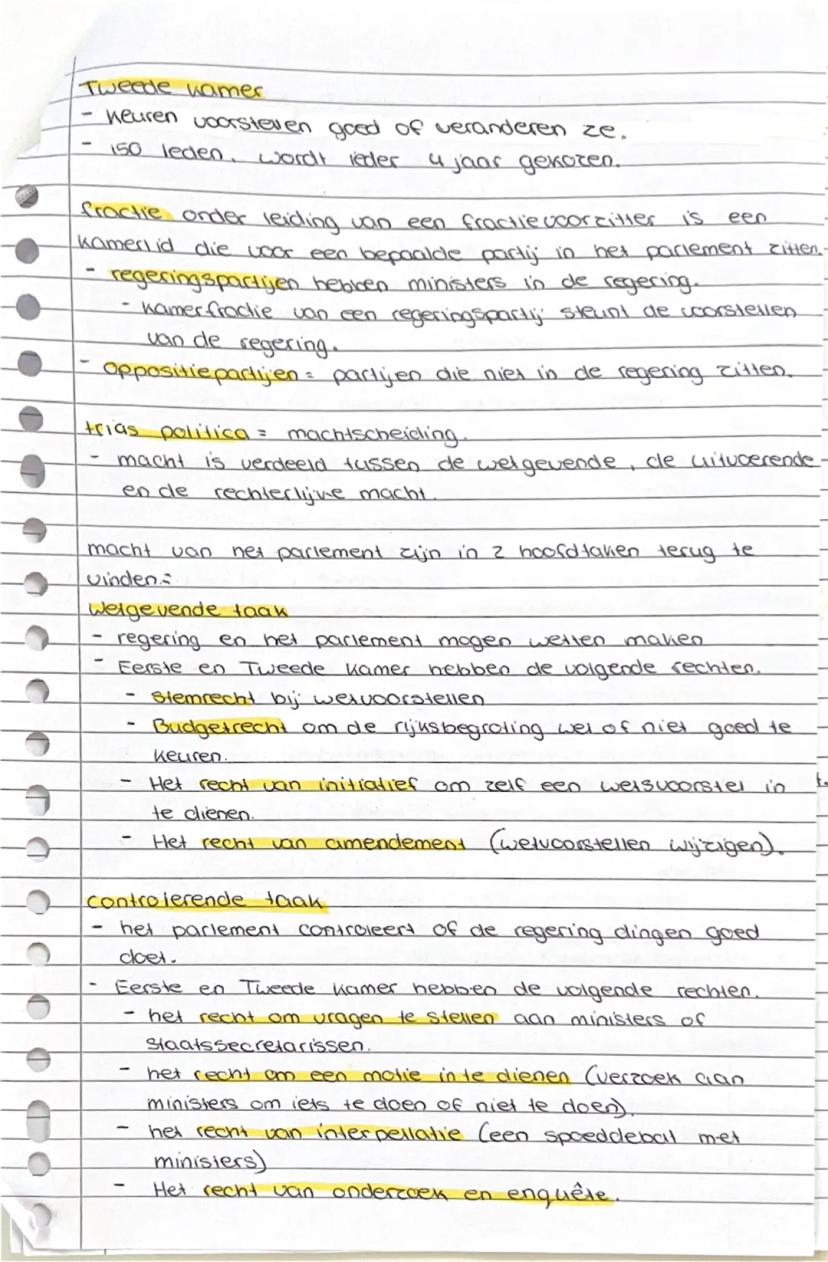 Tweede kamer
- keuren voorstellen goed of veranderen ze.
- 150 leden. wordt ieder 4 jaar gekozen.
fractie onder leiding van een fractievoorzitter is een
kamerlid die voor een bepaalde partij in het parlement zitten.
- regeringspartijen hebben ministers in de regering.
- kamerfractie van een regeringspartij steunt de voorstellen
van de regering.
- oppositiepartijen = partijen die niet in de regering zitten.
trias politica = machtscheiding.
- macht is verdeeld tussen de wetgevende, de uitvoerende
en de rechterlijke macht.
macht van het parlement zijn in 2 hoofdtaken terug te
vinden:
wetgevende taak
- regering en het parlement mogen wetten maken
- Eerste en Tweede kamer hebben de volgende rechten.
- Stemrecht bij wetvoorstellen
- Budgetrecht om de rijksbegroting wel of niet goed te
keuren.
- Het recht van initiatief om zelf een wetsvoorstel in
te dienen.
- Het recht van amendement (wetvoorstellen wijzigen).
controlerende taak
- het parlement controleert of de regering dingen goed
doet.
- Eerste en Tweede kamer hebben de volgende rechten.
- het recht om vragen te stellen aan ministers of
staatssecretarissen.
- het recht om een motie in te dienen (verzoek aan
ministers om iets te doen of niet te doen).
- het recht van interpellatie (een spoeddebat met
ministers)
- Het recht van onderzoek en enquête.